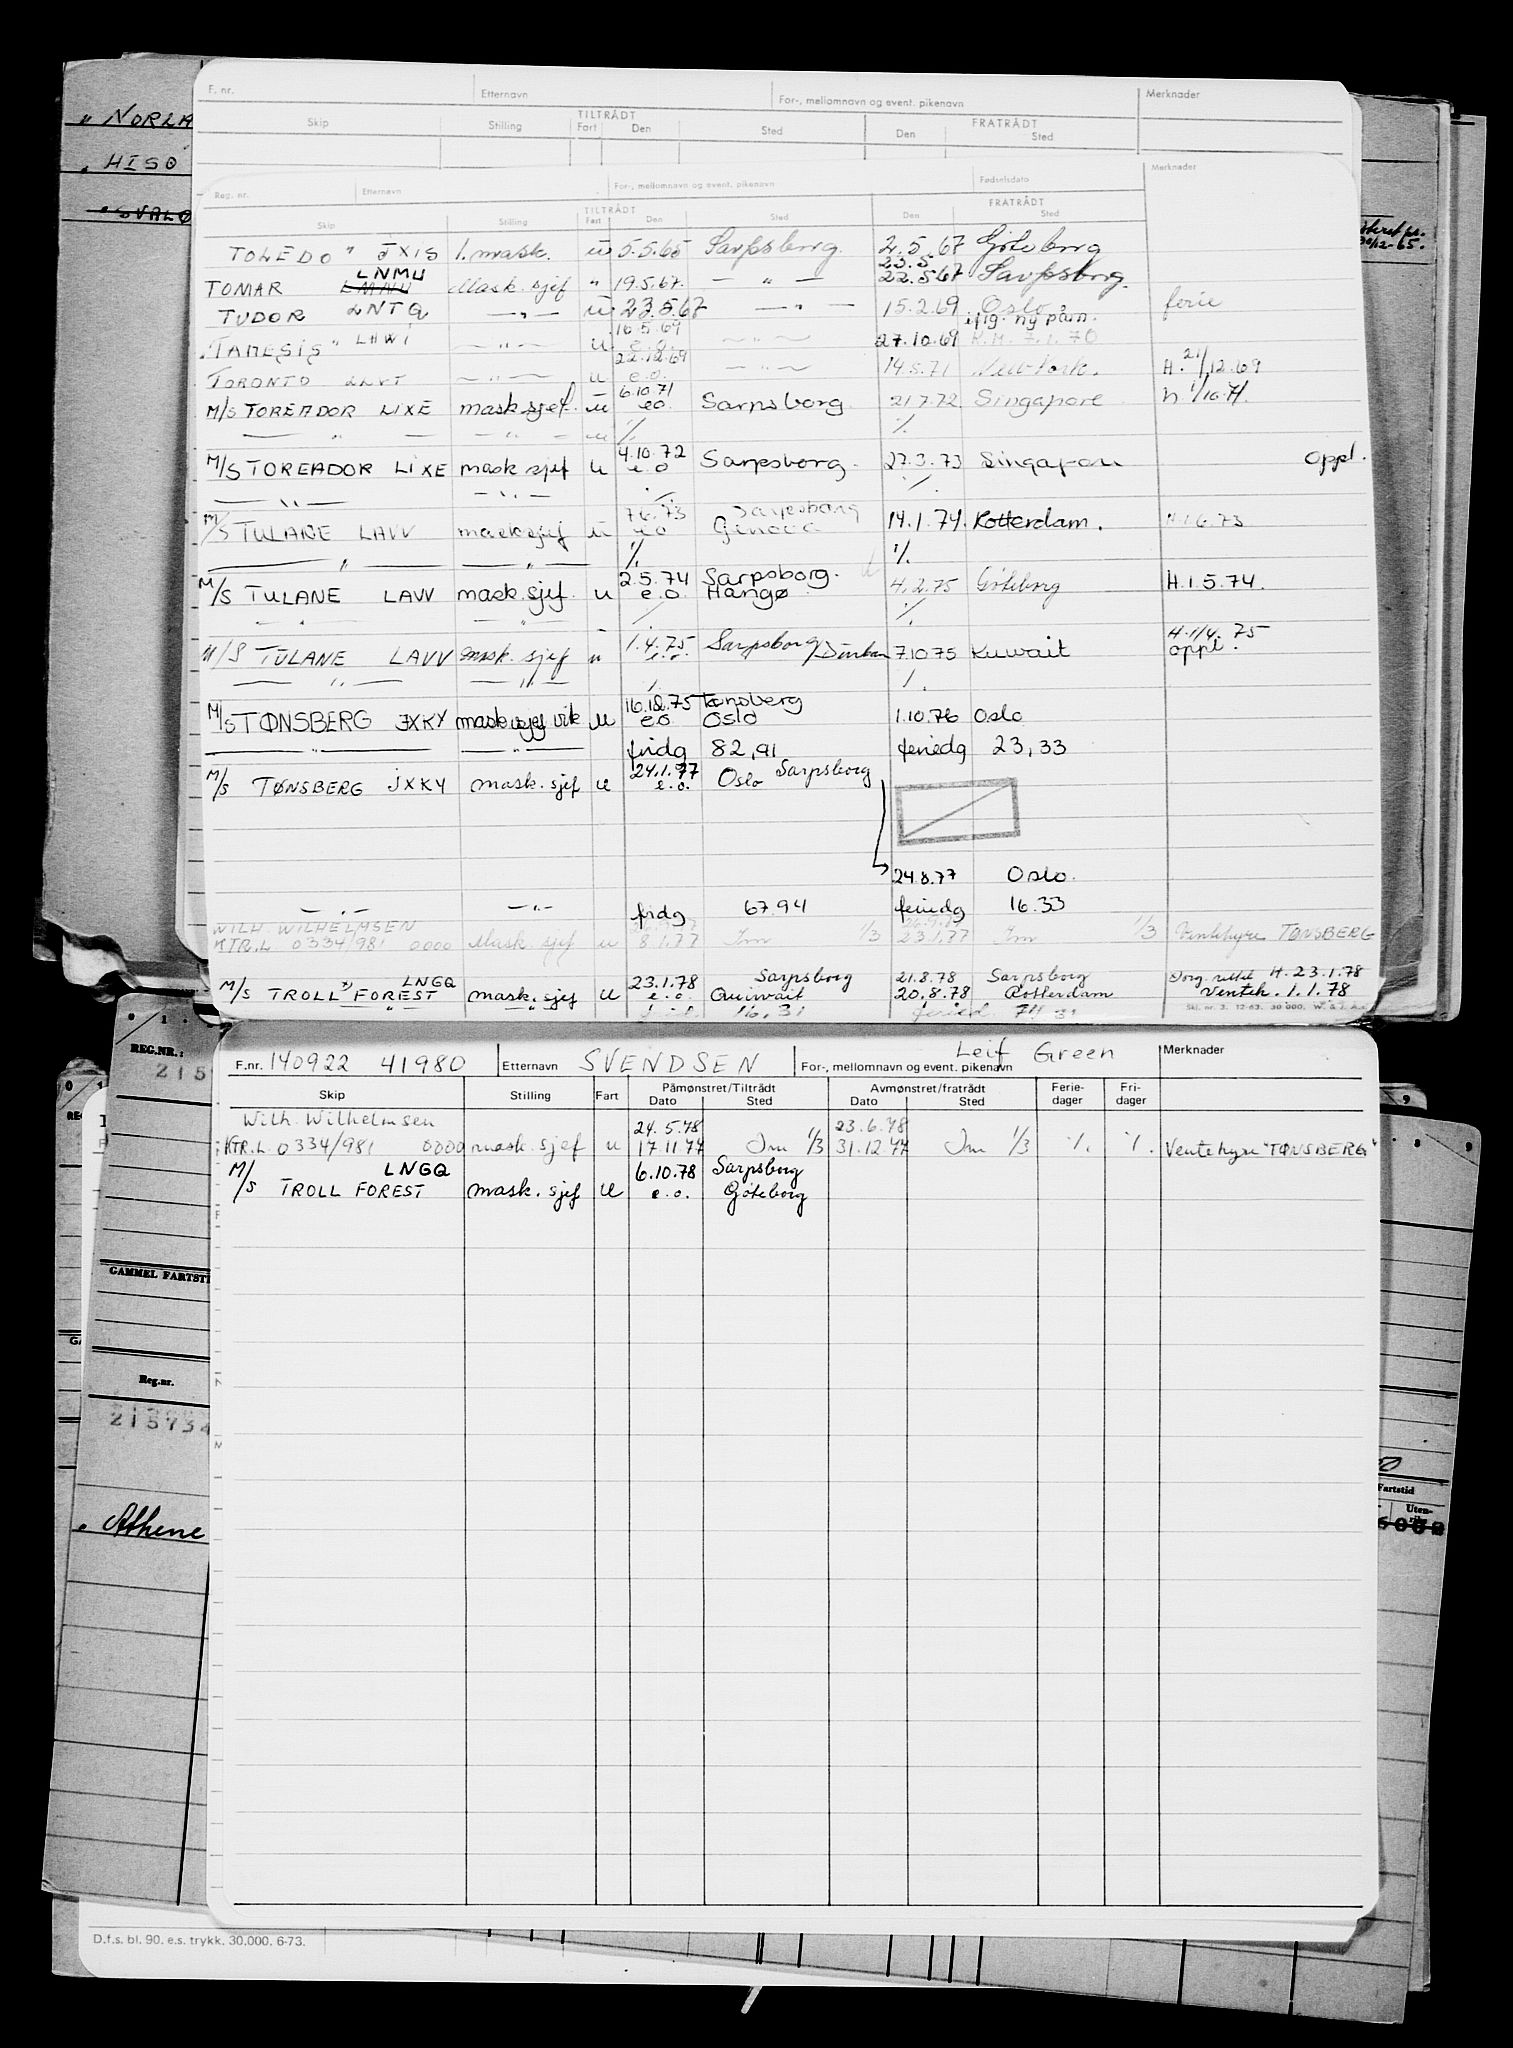 F. nr. Etternavn For-, mellomnavn og event. pikenavn Merknader
TILTRÅDT FRATRÅDT
Skip Stilling Fart Den Sted Den Sted
" NORLA
" HISØ
" SVALØ
Reg. nr. Etternavn For-, mellomnavn og event. pikenavn Fødselsdato Merknader
TILTRÅDT FRATRÅDT
Skip Stilling Fart Den Sted Den Sted
TOLEDO " JXIS 1. mask. u 5.5.65 Sarpsborg. 2.5.67 Göteborg
LNMU 23.5
TOMAR LMNU Mask. sjef " 19.5.67. — " — 22.5.67 Sarpsborg.
TUDOR LNTQ — " — u 23.5.67 — " — 15.2.69 Oslo ferie
16.5.69 iflg. ny påm.
"TAMESIS" LHWI — " — u e.o. — " — 27.10.69 R.M. 7.1.70
22.12.69
TORONTO LLVT — " — u e.o. 14.5.71 New York. H. 21/12.69
6.10.71
M/S TOREADOR LIXE mask.sjef. u eo Sarpsborg 21.7.72 Singapore H 1/10.71.
— " — — " — u % %
4.10.72
M/S TOREADOR LIXE mask sjef u e.o Sarpsborg. 27.3.73 Singapore oppl.
— " — — " — % %
7.6.73 Sarpsborg
M/S TULANE LAVV mask sjef u eo Genova 14.1.74. Rotterdam. H.1.6.73
— " — — " — % %
2.5.74 Sarpsborg.
M/S TULANE LAVV mask. sjef. u e.o. Hangø 4.2.75 Göteborg H.1.5.74.
" — " — % %
1.4.75. Sarpsborg H.1/4. 75
M/S TULANE LAVV mask. sjef u e.o. /Durban 7.10.75 Kuwait oppl.
— " — — " — % %
16.12.75 Tønsberg
M/S TØNSBERG JXKY mask sjef vik u e.o Oslo 1.10.76 Oslo
— " — — " — fridg 82,91 feriedg 23,33
24.1.77 Sarpsborg
M/S TØNSBERG JXKY mask. sjef u e.o. Oslo
24.8.77 Oslo.
— " — — " — fridg 67.94 feriedg 16.33
WILH. WILHELMSEN
KTR.L 0334/981 0000 Mask. sjef u 8.1.77 Im 1/3 23.1.77 Im 1/3 Ventehyre TØNSBERG
LNGQ 23.1.78 Sarpsborg 21.8.78 Sarpsborg H. 23.1.78
M/S TROLL FOREST mask. sjef u e.o. Quwait 20.8.78 Rotterdam Venteh. 1.1.78
" " 16,31
Skj. nr. 3. 12-63. 30 000.
REG.NR.:
F.nr. 140922 41980 Etternavn SVENDSEN For-, mellomnavn og event. pikenavn Leif Green Merknader
Påmønstret/Tiltrådt Avmønstret/fratrådt Ferie- Fri-
Skip Stilling Fart Dato Sted Dato Sted dager dager
Wilh. Wilhelmsen 24.5.78 23.6.78
KTR.L 0334/981 0000 mask. sjef u 17.11.77 Im 1/3 31.12.77 Im 1/3 % % Ventehyre "TØNSBERG"
LNGQ 6.10.78 Sarpsborg
M/S TROLL FOREST mask. sjef u e.o. Göteborg
GAMMEL FARTSTI
Reg.nr.
215734
" Athene
Fartstid
Uten-
D.f.s. bl. 90. e.s. trykk. 30.000. 6-73.